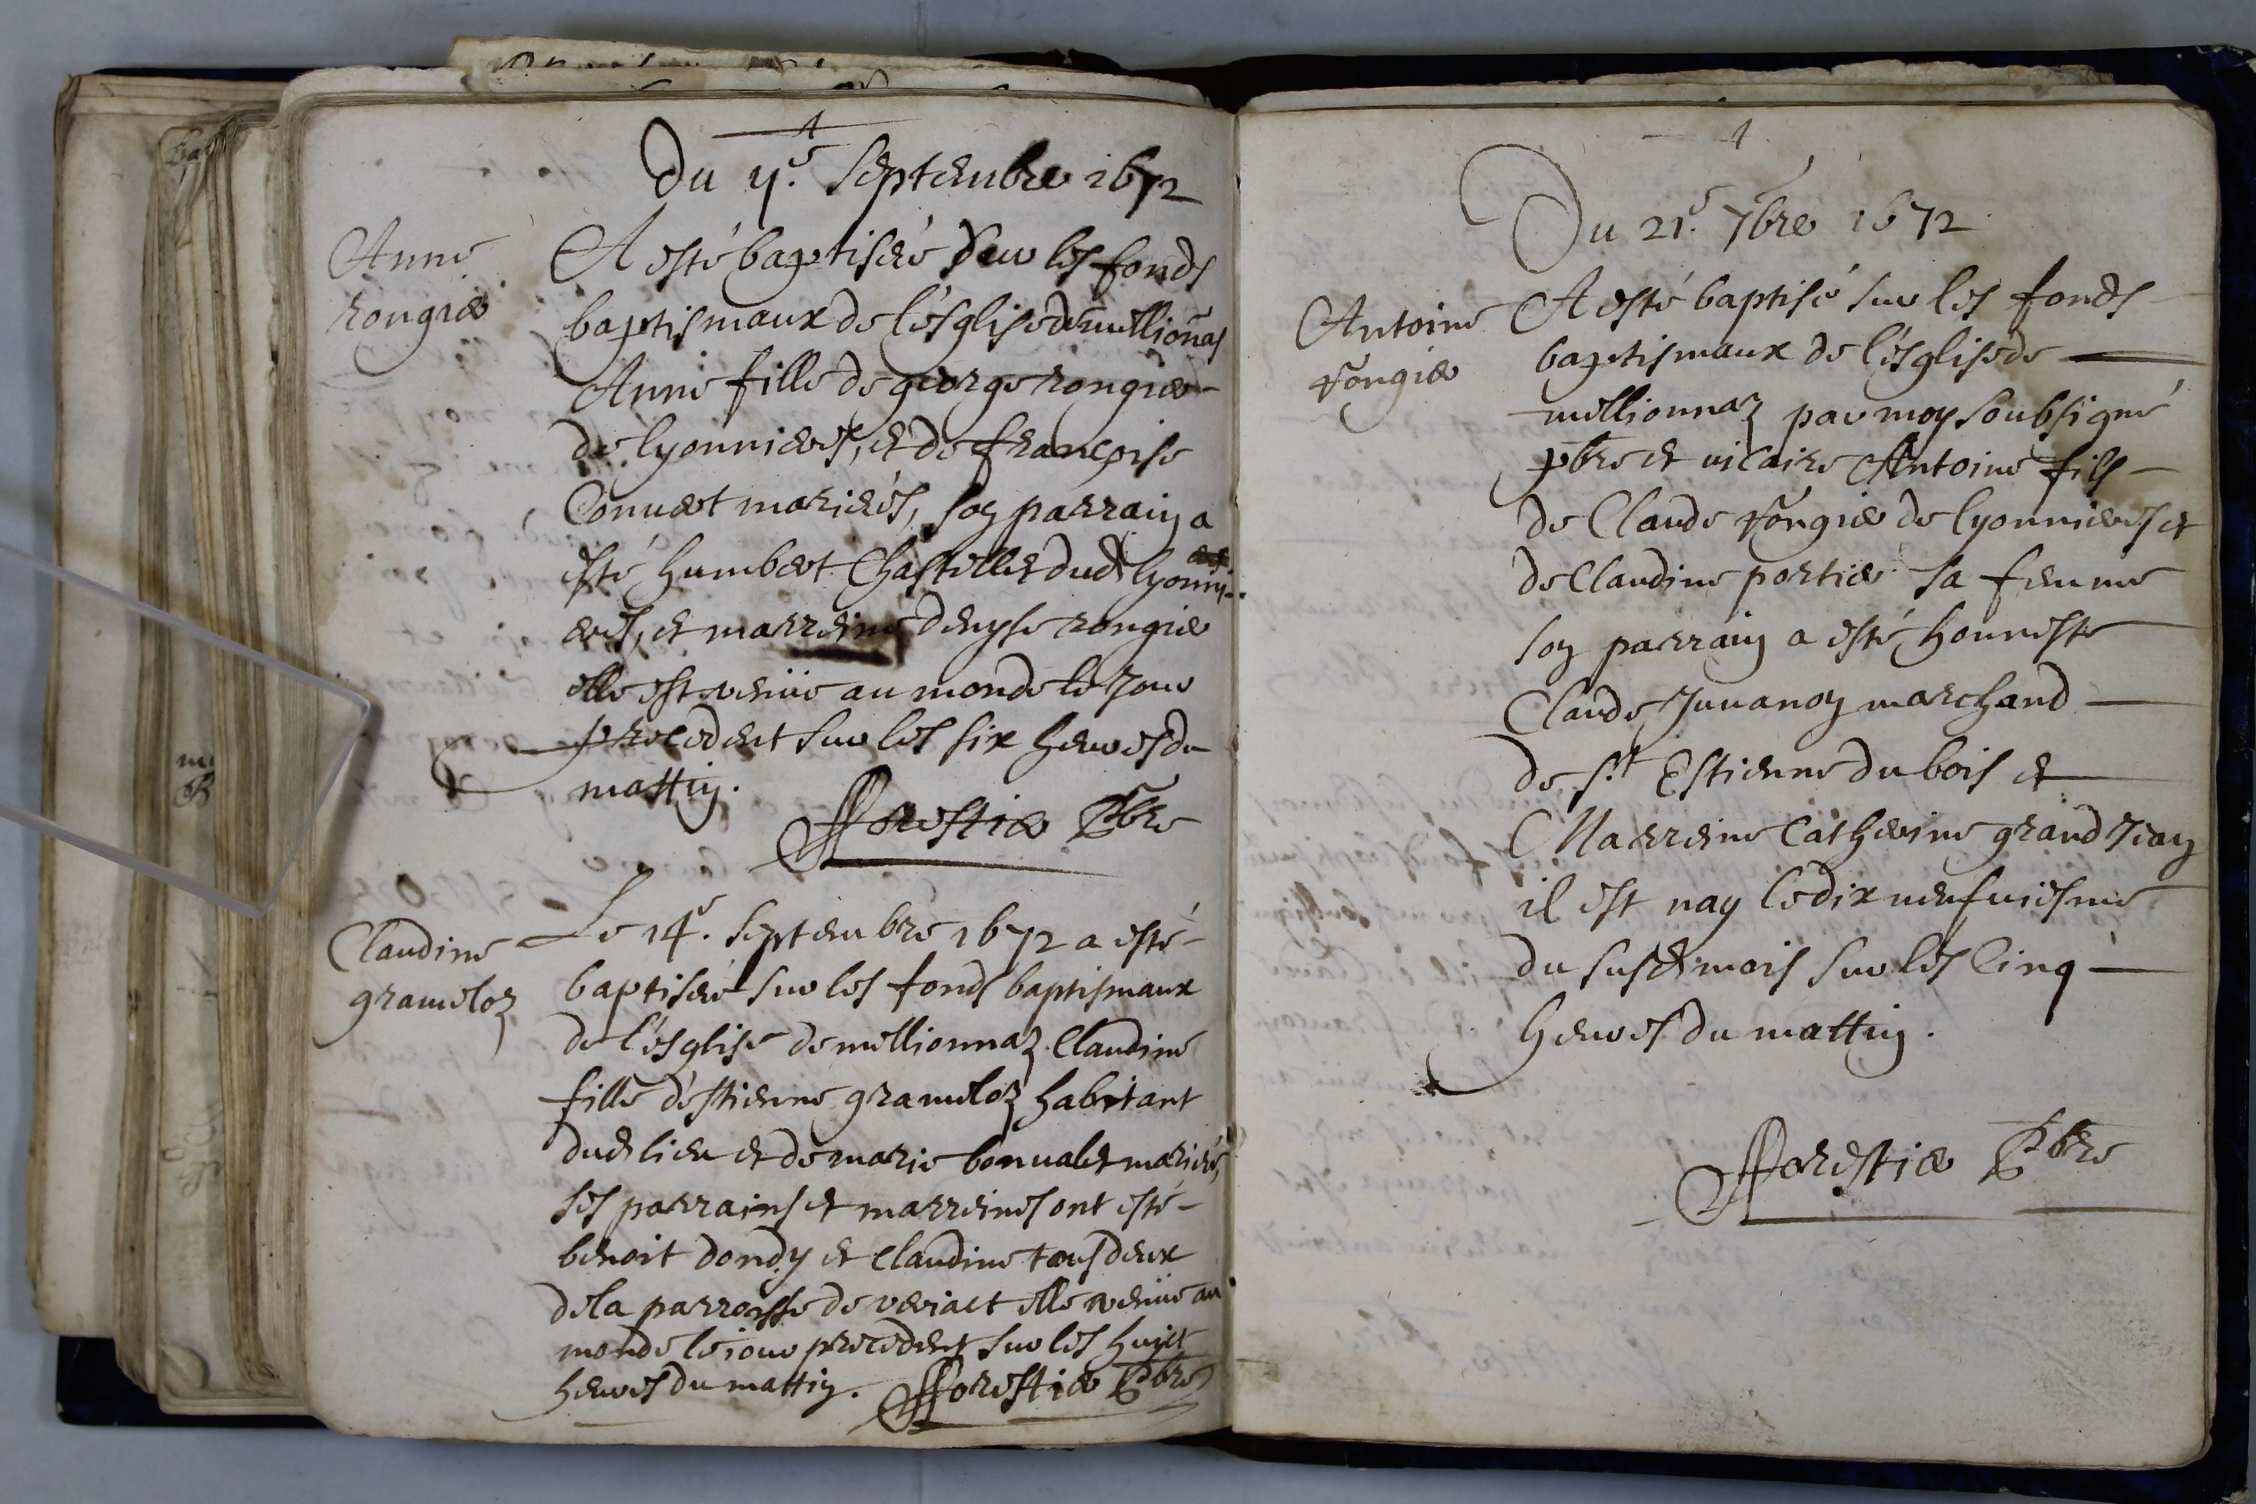 Du 4e. Septembre 1672
Anne
rongier
A esté baptiseé Sur les fonds
baptismaux de l'ésglise de mellionas
Anne fille de george rongier
de lyonnieres, et de françoise
Conuert marieés, son parrain a
esté humbert Chastillet dud lyonni-
eres, et marreine denyse rongier
elle est venüe au monde le Jour
precedent sur les six heures du
mattin.
fforestier Pbre
Claudine
grameloz
Le 14e. Septembre 1672 a esté
baptiseé sur les fonds baptismaux
de l'ésglise de mellionnaz Claudine
fille d'éstienne grameloz habitant
dud lieu et de marie bonualet marieés,
ses parrains et marreines ont esté
benoit dondy et Claudine tous deux
de la parroisse de veriact elle venüe au
monde le iour precedent sur les huict
heures du mattin. fforestier Pbre
Du 21e. 7bre 1672
Antoine
rongier
A esté baptisé sur les fonds
baptismaux de l'ésglise de
mellionnaz par moy soubsigné
pbre et vicaire Antoine fils
de Claude rongier de lyonnieres et
de Claudine portier sa femme
son parrain a esté honneste
Claude Juuanon marchand
de st Estienne du bois et
Marreine Catherine grand Jean
il est nay le dix neufuiesme
du susd mois sur les Cinq
heures du mattin.
fforestier Pbre